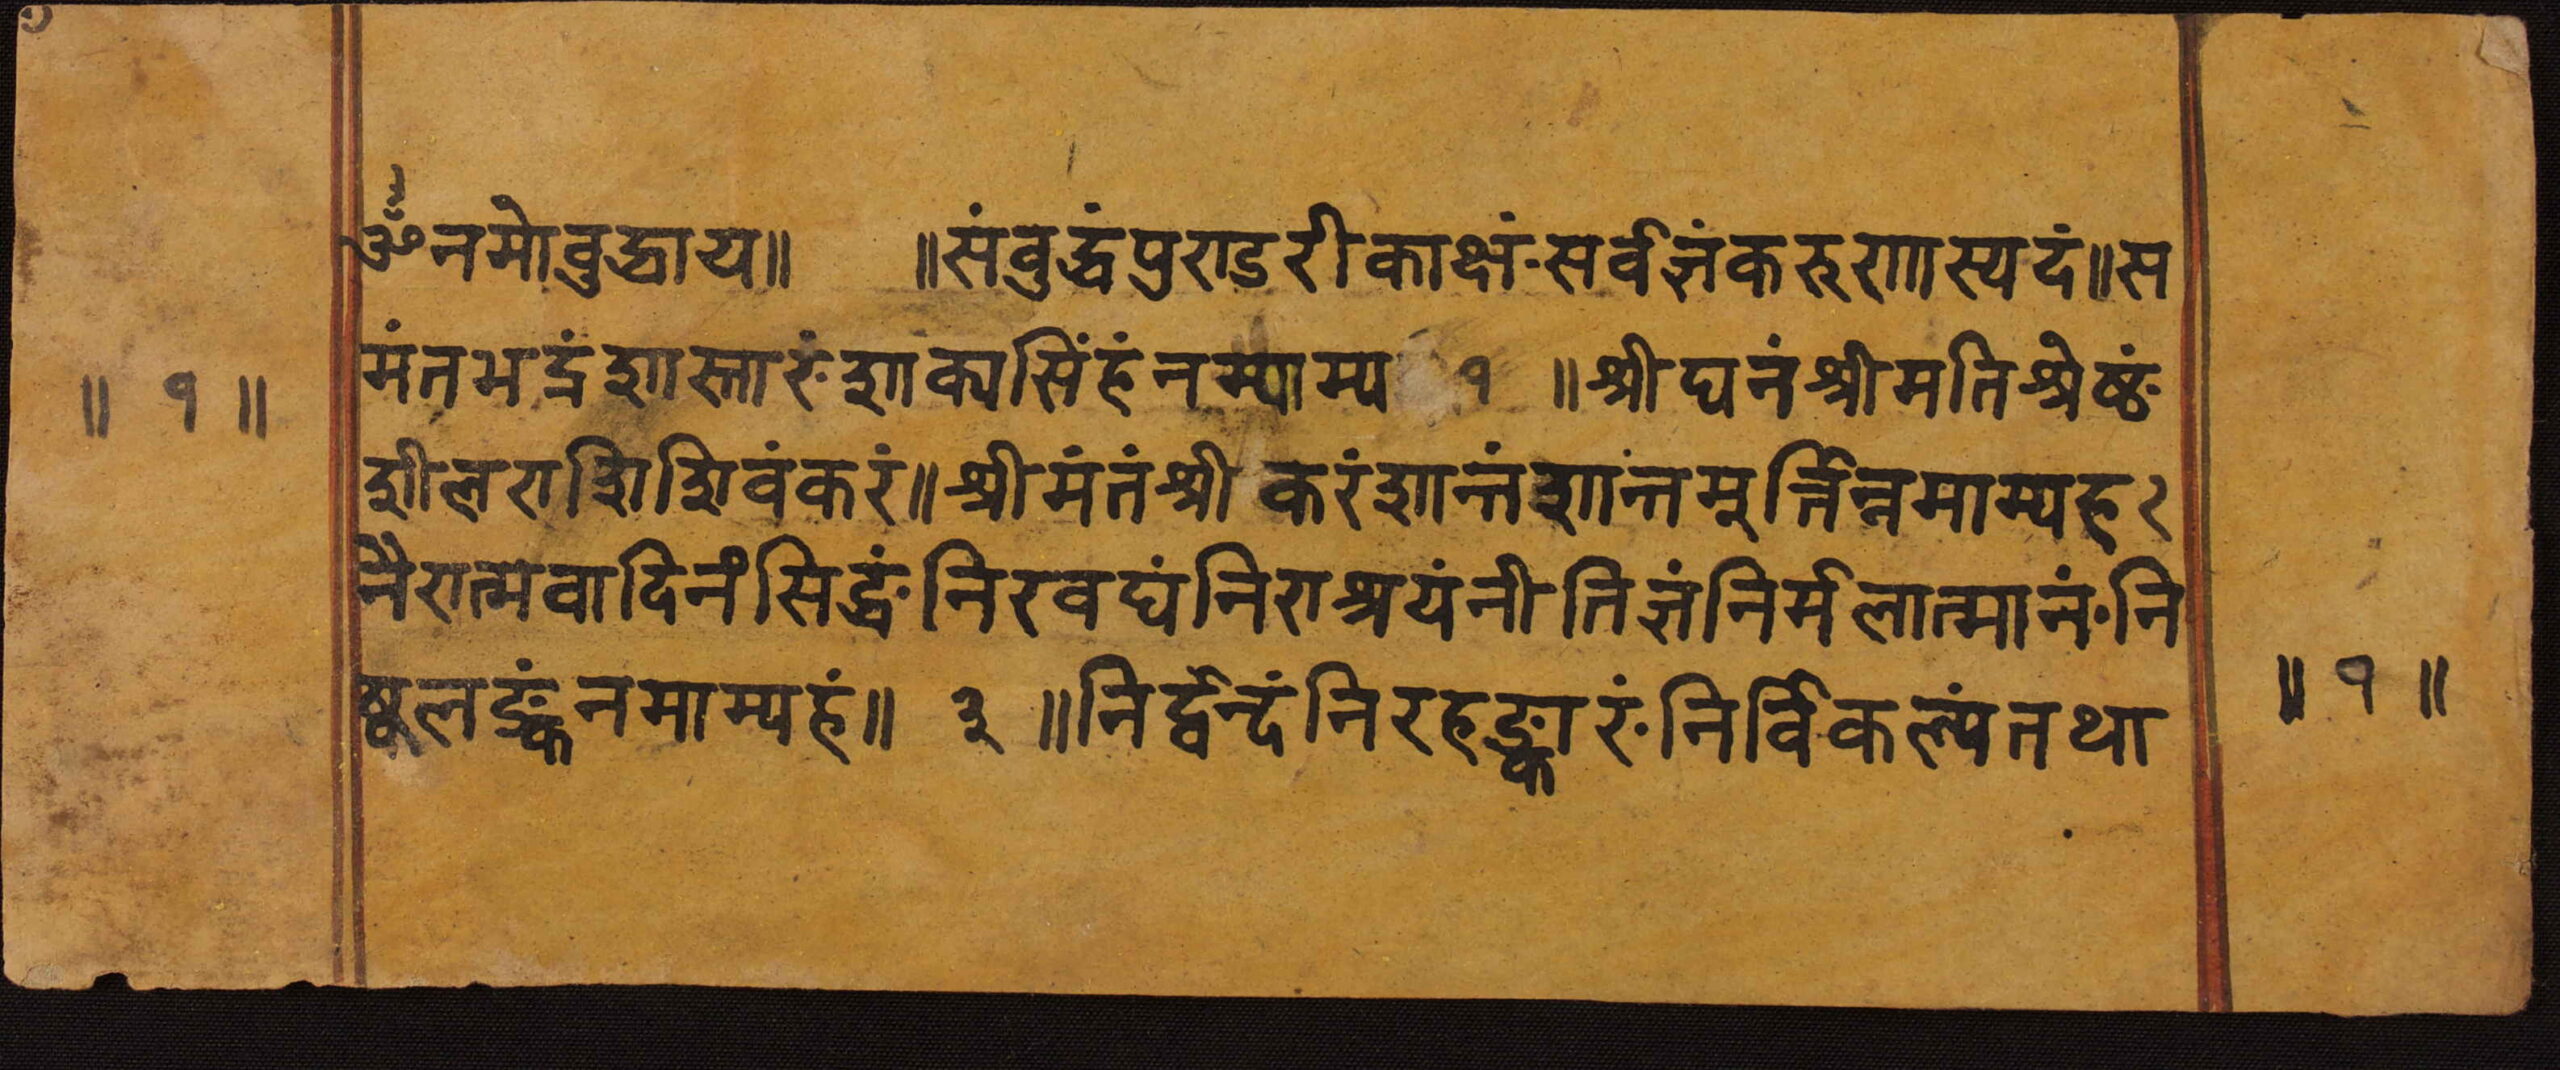 ॐ नमोवुद्धाय॥ ॥संवुद्धंपुराडरीकाक्षंसर्वज्ञंकरुराास्यदं॥स
मंतभद्रंशास्तारंशाक्यसिंहंनम्याम्य १ ॥श्रीघनंश्रीमतिश्रेष्ठं
॥ १ ॥
शीलराशिशिवंकरं॥श्रीमंतंश्रीकरंशान्तंशांन्तमूर्त्तिन्नमाम्यह२
नैरात्मवादिनंसिद्धंनिरवघंनिराश्रयंनीतिज्ञंनिर्मलात्मानंनि
ष्कलङ्कंनमाम्यहं॥ ३ ॥निर्द्वन्दंनिरहङ्कारंनिर्विकल्पंतथा
॥ १ ॥